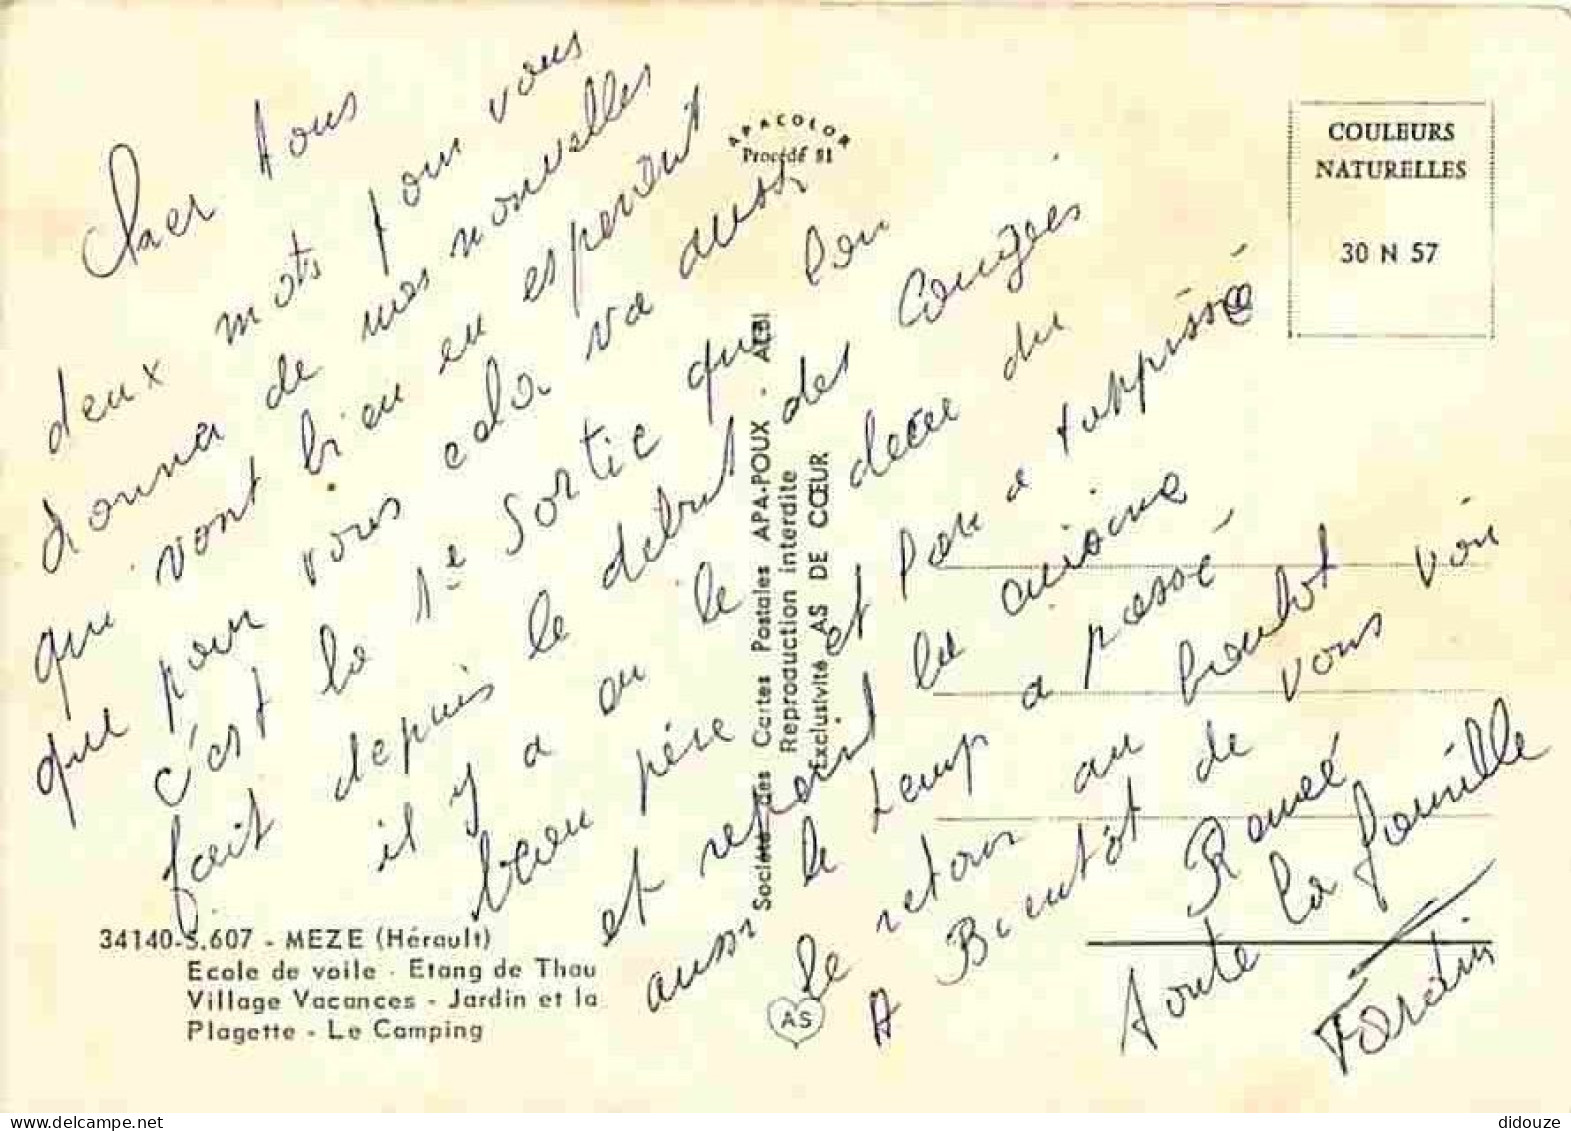 Cher tous
deux mots pour vous
donner de mes nouvelles
qui vont bien en esperent
que pour vous cela va aussi
c'est la 1e sortie que lon
fait depuis le debut des congés
il y a eu le decee du
beau père et pan a tappissé
et repeint la cuisine
aussi le temp a passé
le retour au boulot
A Bientôt de vous voir
Renée
toute la famille
Fardin
APACOLOR
Procédé 81
COULEURS
NATURELLES
30 N 57
Société des Cartes Postales APA-POUX - ALBI
Reproduction interdite
Exclusivité AS DE CŒUR
34140-S.607 - MEZE (Hérault)
Ecole de voile - Etang de Thau
Village Vacances - Jardin et la
Plagette - Le Camping
AS
didouze